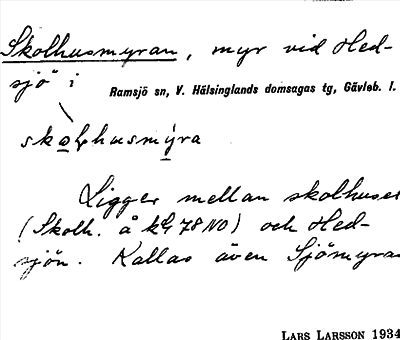 Skolhusmyran, myr vid Hed-
sjö i Ramsjö sn, V. Hälsinglands domsagas tg, Gävleb. l.
skolhusmýra
Ligger mellan skolhuset
(Skolh. å kbl 78 NO) och Hed-
sjön. Kallas även Sjömyran
LARS LARSSON 1934